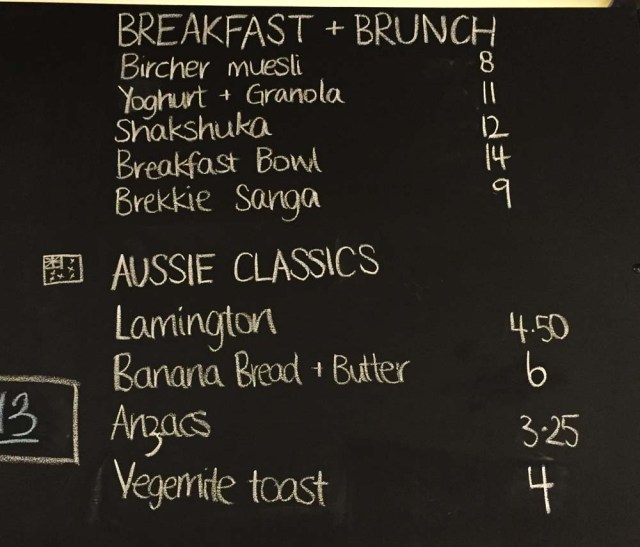 BREAKFAST + BRUNCH
Bircher muesli 8
Yoghurt + Granola 11
Shakshuka 12
Breakfast Bowl 14
Brekkie Sanga 9
AUSSIE CLASSICS
Lamington 4.50
Banana Bread + Butter 6
13
Anzacs 3.25
Vegemite toast 4